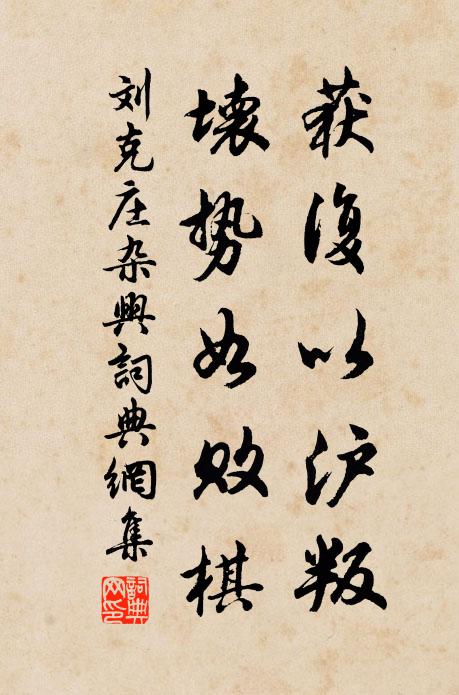 获復以沪叛
壞势如败棋
刘克庄杂興詞典網集
詞典网印